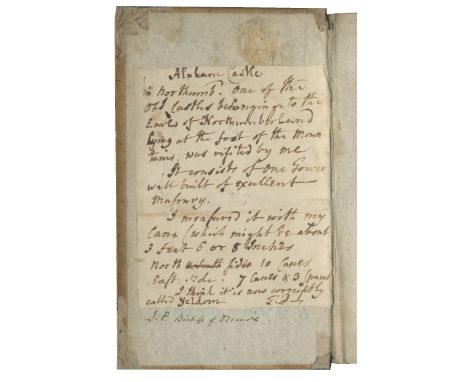 Alnham Castle
in Northumbd. One of the
Old Castles belonging to the
Earls of Northumberland
lying at the foot of the Moun
tains, was visited by me
It consists of One Tower
wall built of excellent
Masonry.
I measured it with my
Cane (which might be about
3 feet 6 or 8 Inches
North & South sides 10 Canes
East Side. 7 Canes & 3 Spans
I think it is now corruptly
called Yeldom
T. P. Bishop of Dromore